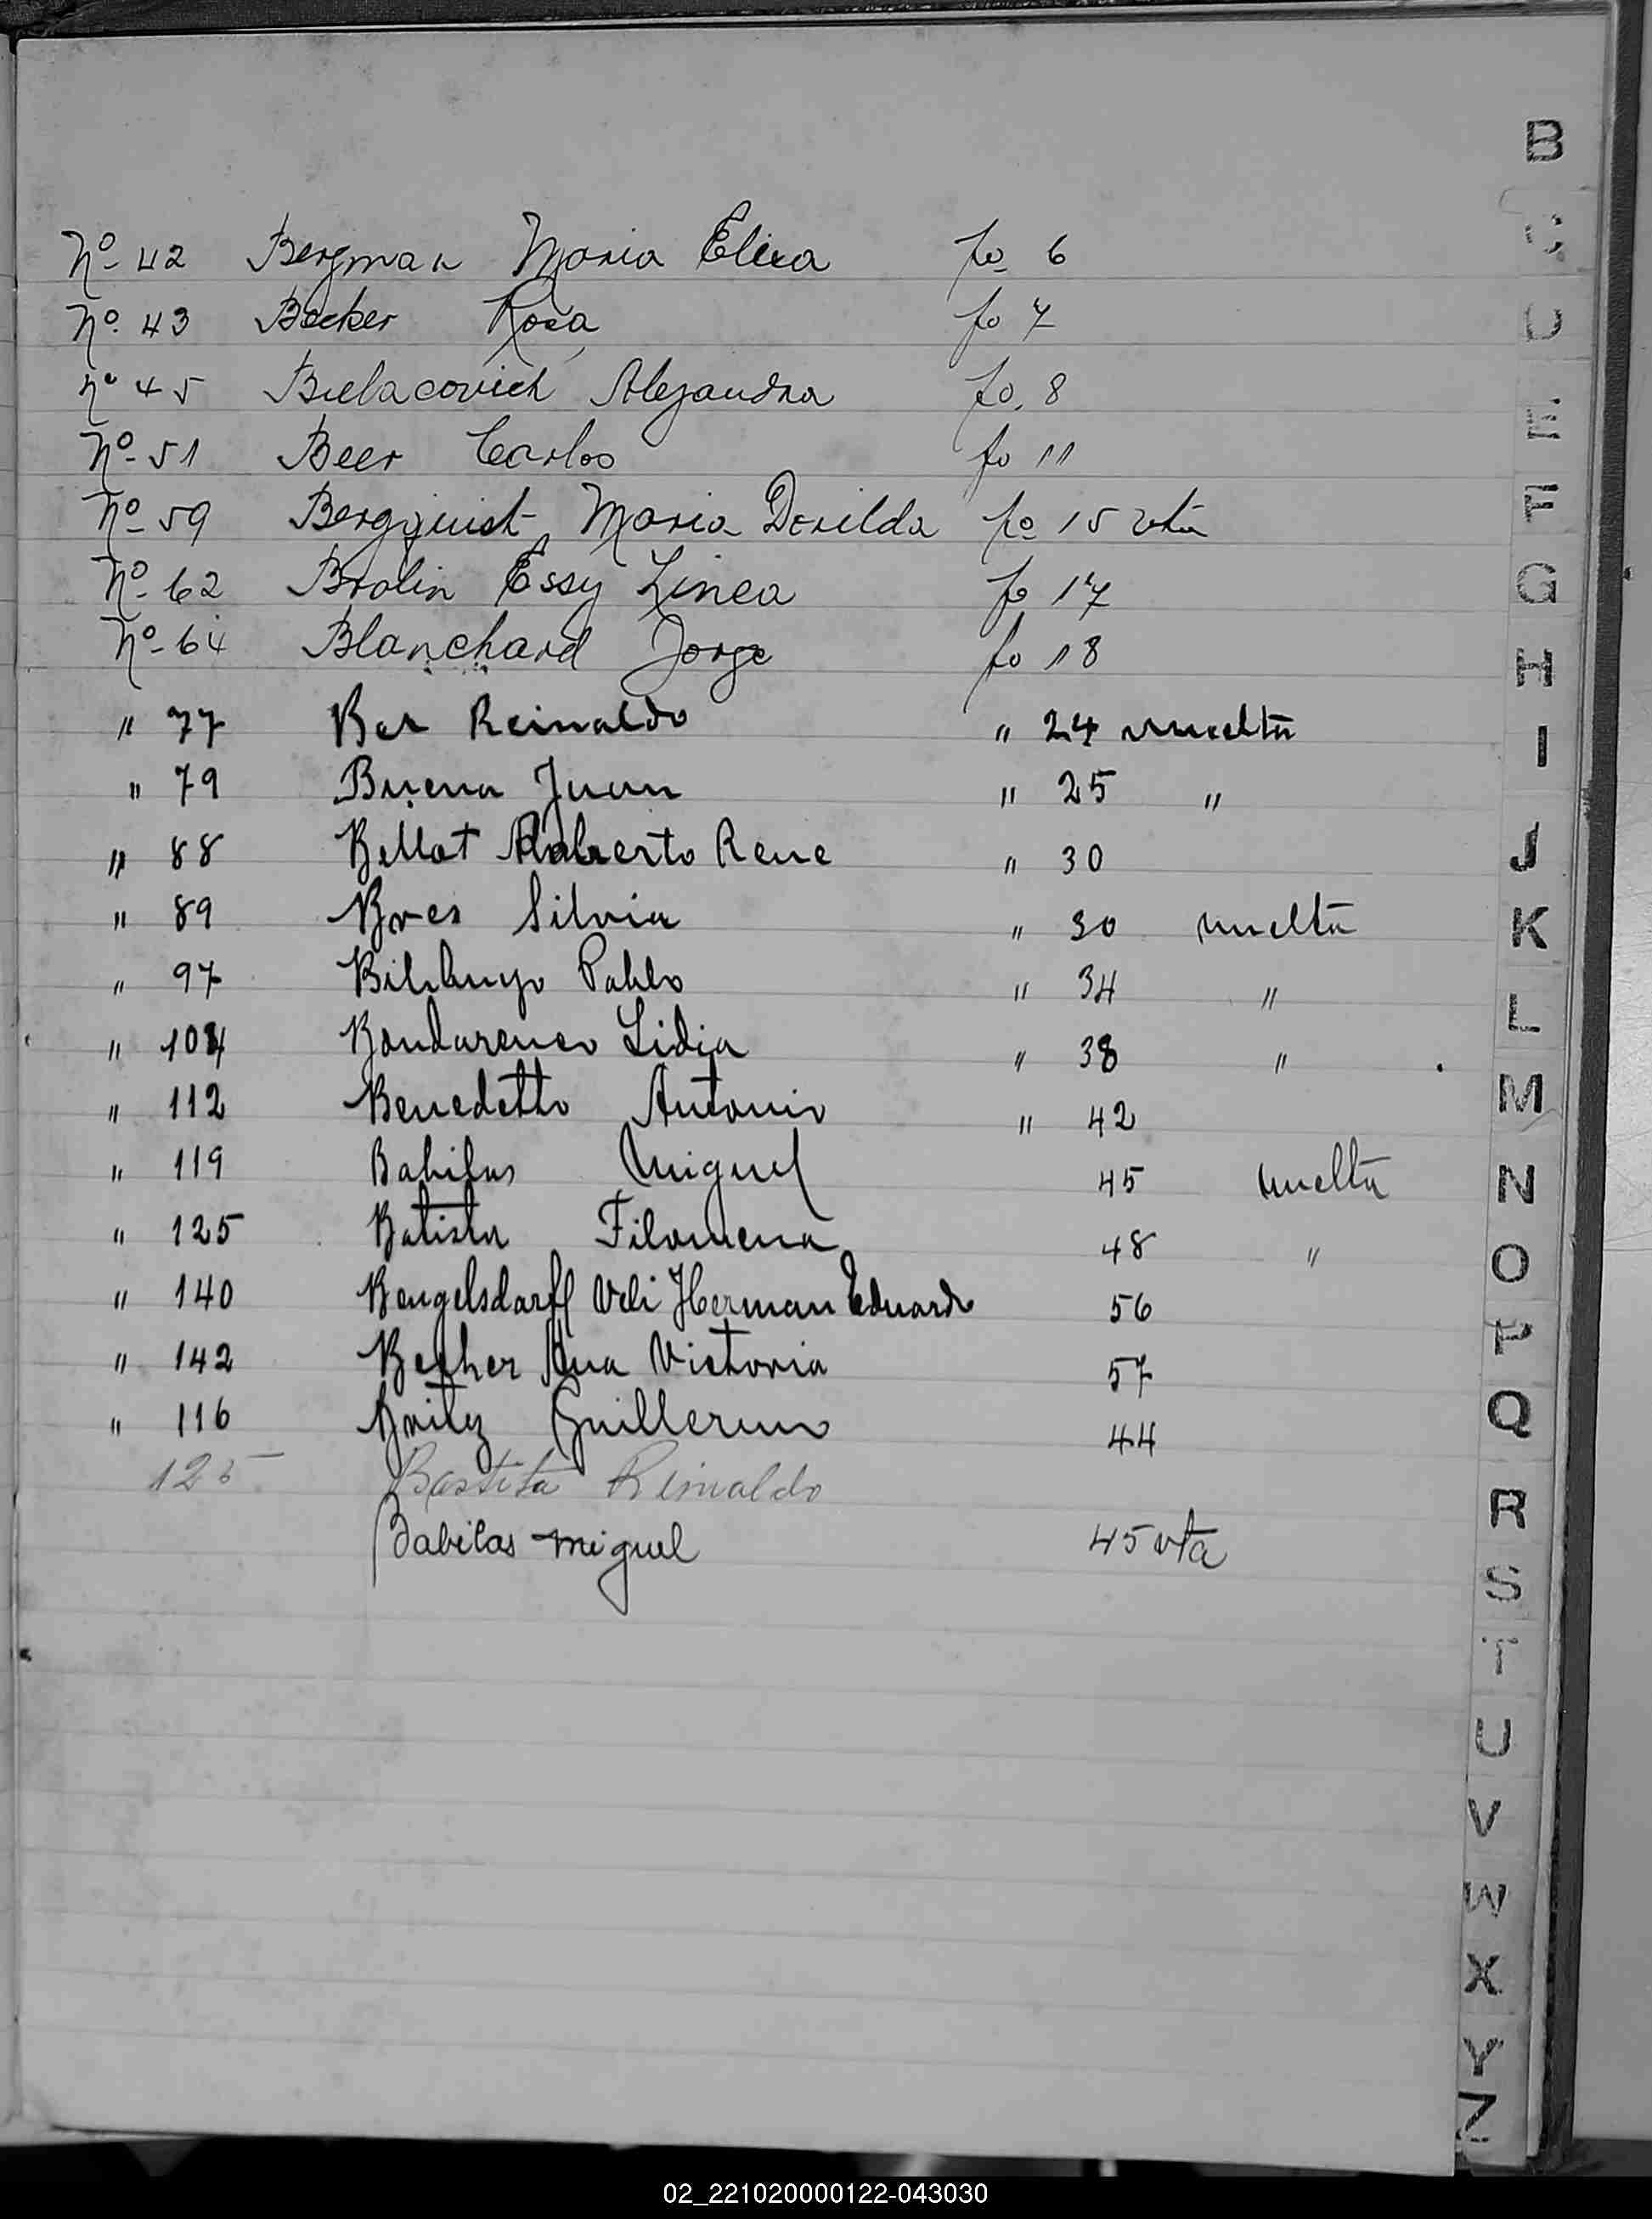 B
C
D
E
F
G
H
I
J
K
L
M
N
O
P
Q
R
S
T
U
V
W
X
Y
Z
Nº 42 Bergman Maria Elisa fo 6
Nº 43 Becker Rosa fo 7
nº 45 Bielacovich Alejandra fo. 8
Nº 51 Beer Carlos fo 11
Nº 59 Bergquist Maria Derilda fo 15 vta
Nº 62 Brolin Essy Linea fo 17
Nº 64 Blanchard Jorge fo 18
" 77 Ber Reinaldo " 24 vuelta
" 79 Buena Juan " 25 "
" 88 Bellot Roberto Rene " 30
" 89 Bres Silvia " 30 vuelta
" 97 Pablo " 34 "
" 104 Bondarenco Lidia " 38 "
" 112 Benedetto Antonio " 42
" 119 Babilas Miguel 45 vuelta
" 125 Batista Filomena 48 "
" 140 Bengelsdorff Herman Eduardo 56
" 142 Becher Ana Victoria 57
" 116 Britez Guillermo 44
125 Bastita Reinaldo
Babilas Miguel 45 vta
02_221020000122-043030